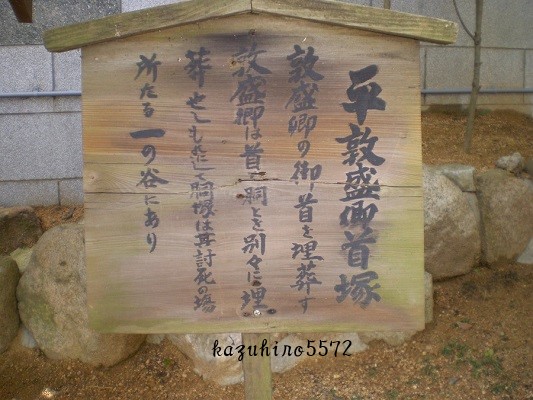 平敦盛卿首塚
敦盛卿の御首を埋葬す
敦盛卿は首と胴とを別々に埋
葬せしものにして胴塚は其討死の場
所たる一の谷にあり
kazuhiro5572